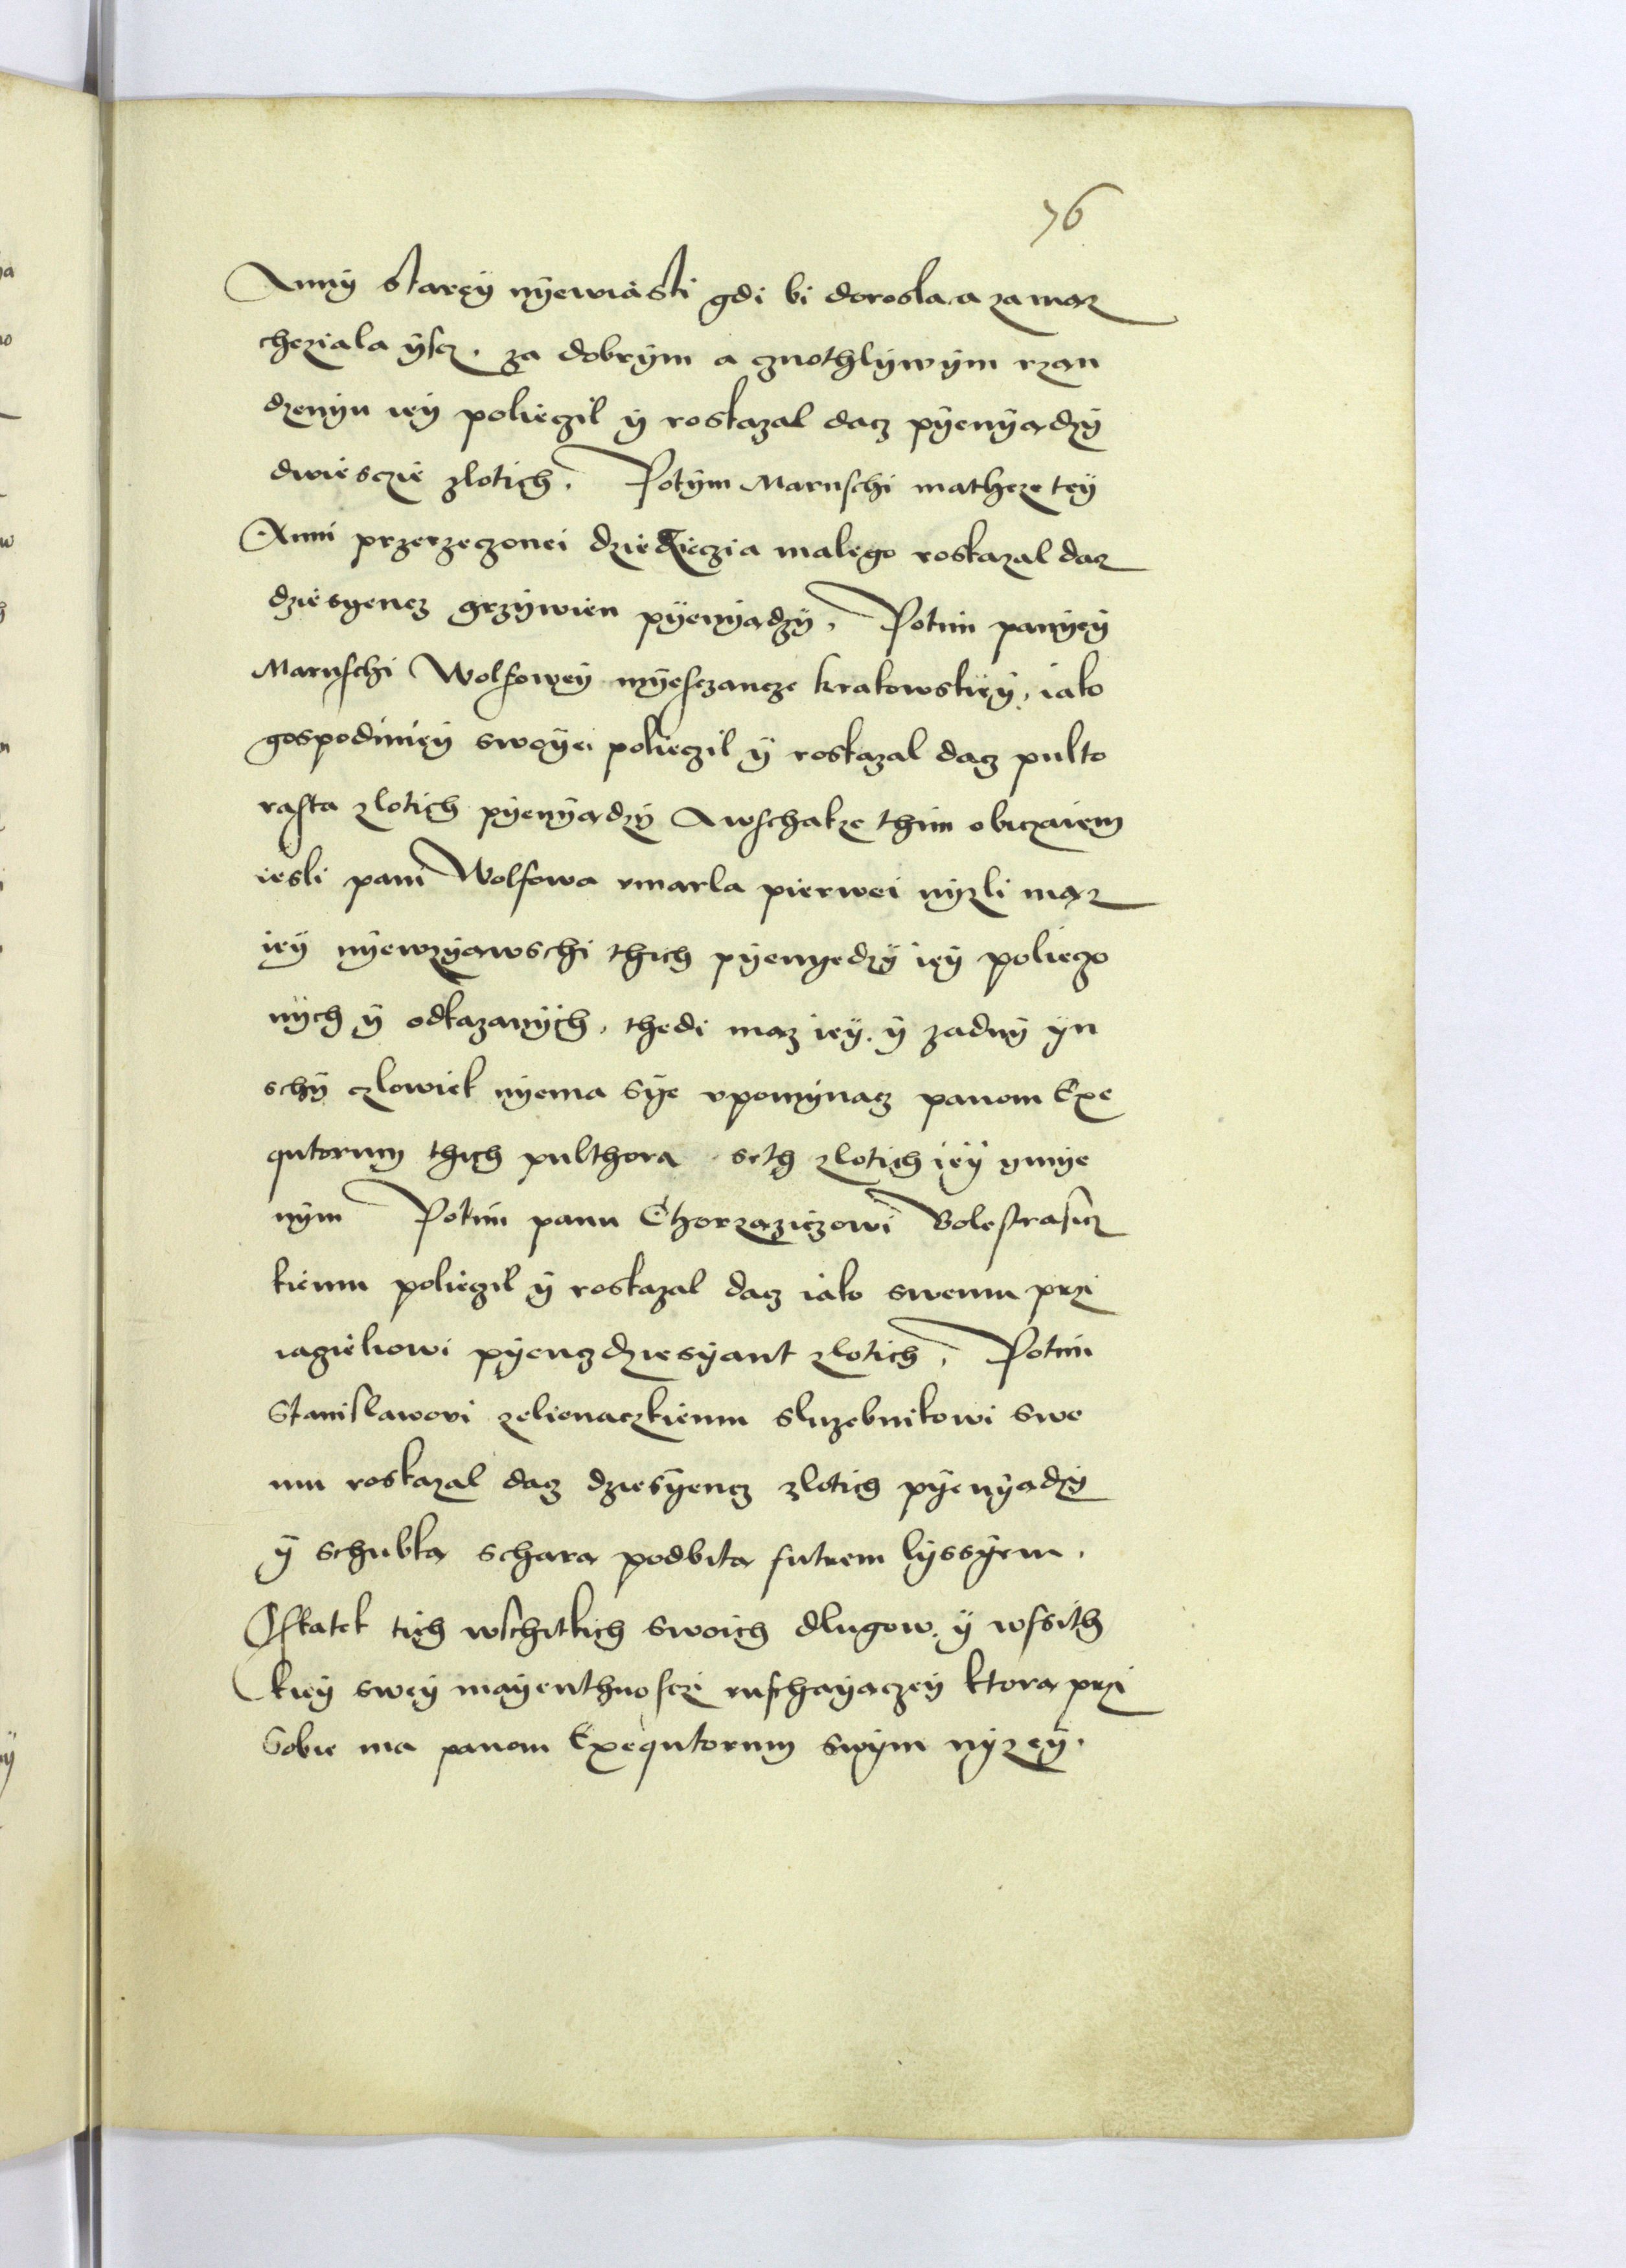 76
Anny starey nyewiasti gdi bi dorosla a zamaz
chcziala yscz. za dobrym a cznothlywym rzan
dzenyu iey polieczil y roskazal dacz pyenyadzy
dwiesczie zlotich. Potym Maruschi mathcze tey
Anni przerzeczonei dziedzieczia malego roskazal dacz
dziesyencz grzywien pyenyadzy. Potim panyey
Maruschi Wolfowey myesczancze krakowskiey, iako
gospodiniey swoyei polieczil y roskazal dacz pulto
rasta zlotich pyenyadzy Awschakze thim obiczaiem
iesli pani Wolfowa vmarla pierwei nyzli maz
iey nyewzyawschi thich pyenyedzy iey poliego
nych y odkazanych, thedi maz iey. y zadny yn
schy czlowiek nyema sye vpomynacz panom Exe
qutorum thich pulthora seth zlotich iey ymye
nym Potim panu Chorzaziczowi Bolestrasicz
kiemu polieczil y roskazal dacz iako swemu przi
iacieliowi pyenczdziesyant zlotich, Potim
Stanislawovi zelienaczkiemu sluzebnikowi swe
mu roskazal dacz dziesyencz zlotich pyenyadzy
y schubka schara podbita futrem lyssyem.
Ostatek tich wschitkich swoich dlugow. y wssith
kiey swey mayenthnosczi ruschayaczey ktora przi
sobie ma panom Exequtorum swym nyzey.